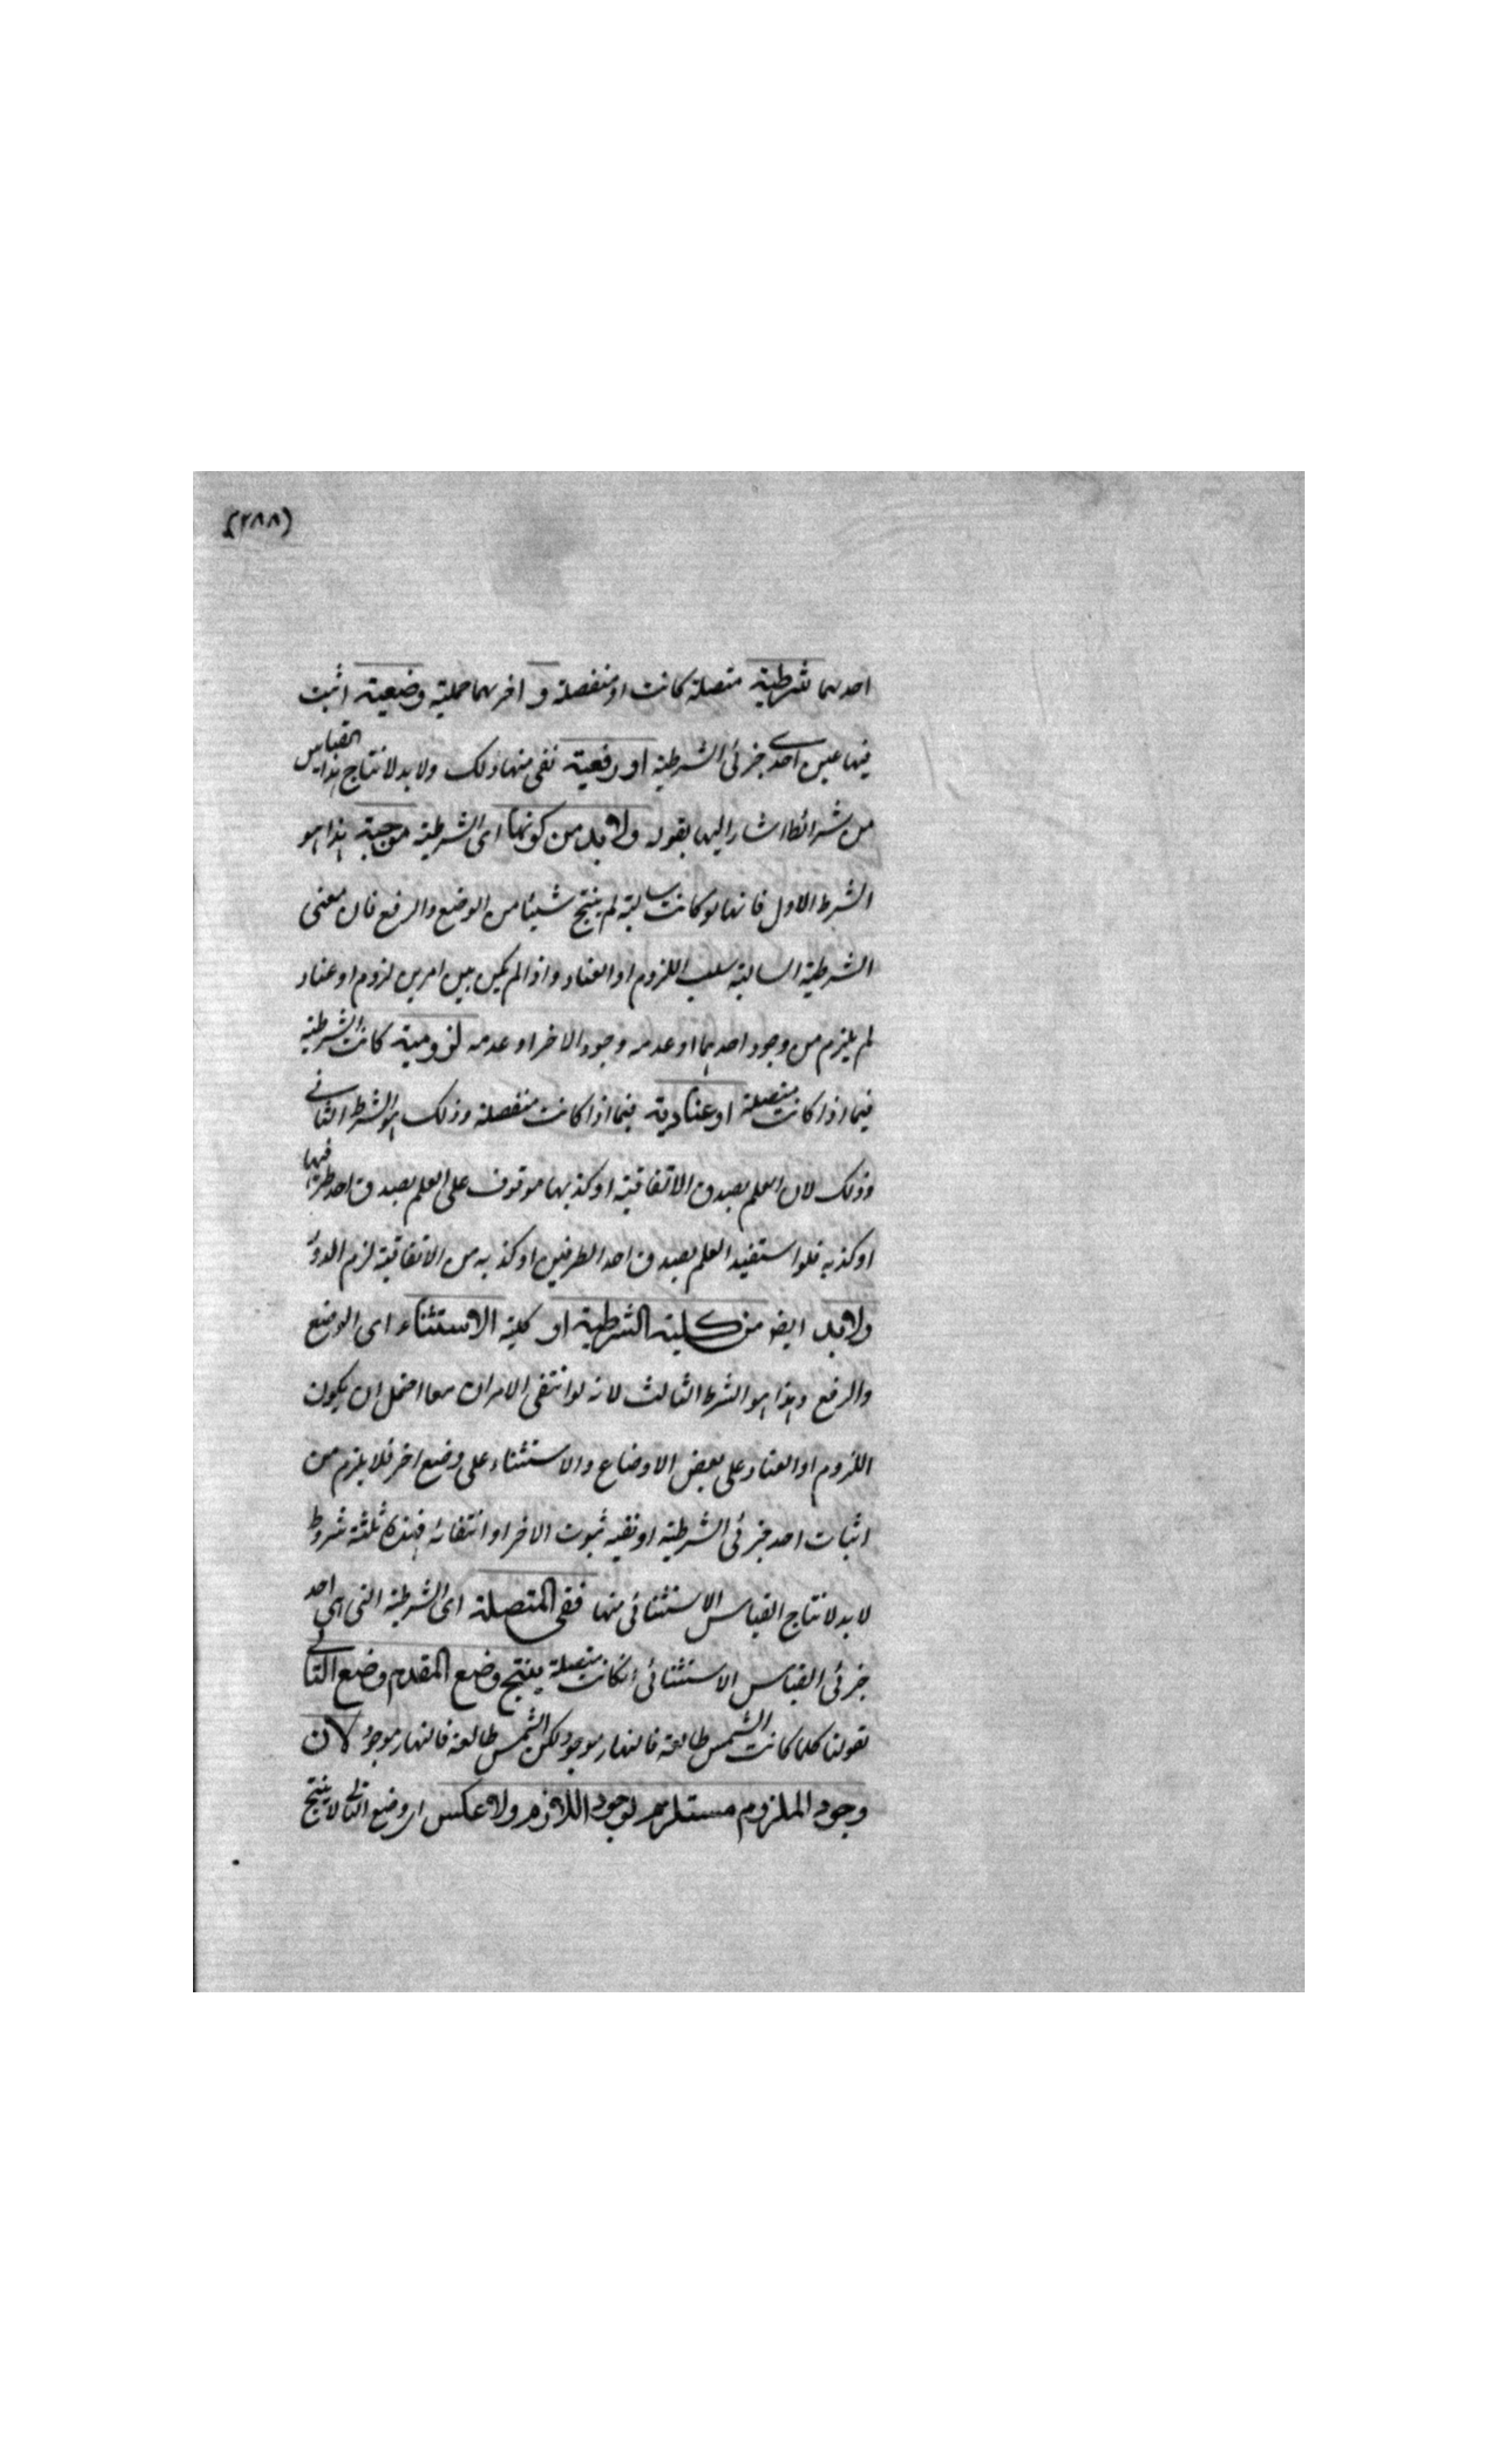 (٢٨٨)
احدهما شرطية متصلة كانت او منفصلة و اخرىهما حملية وضعية اثبت
فيها عين احدى جزئى الشرطية او رفعية نفى منها ذلك ولا بد لانتاج هذا القياس
من شرائط اشار اليها بقوله ولابد من كونها اى الشرطية موجبة هذا هو
الشرط الاول فانها لو كانت سالبة لم ينتج شيئا من الوضع والرفع فان معنى
الشرطية السالبة سلب اللزوم او العناد واذا لم يكن بين امرين لزوم او عناد
لم يلزم من وجود احدهما او عدمه وجود الاخر او عدمه لزومية كانت الشرطية
فيما اذا كانت متصلة او عنادية فيما اذا كانت منفصلة وذلك هو الشرط الثانى
وذلك لان العلم بصدق الاتفاقية او كذبها موقوف على العلم بصدق احد طرفيها
او كذبه فلو استفيد العلم بصدق احد الطرفين او كذبه من الاتفاقية لزم الدور
ولابد ايضا من كلية الشرطية او كلية الاستثناء اى الوضع
والرفع وهذا هو الشرط الثالث لانه لو انتفى الامران معا احتمل ان يكون
اللزوم او العناد على بعض الاوضاع والاستثناء على وضع اخر فلا يلزم من
اثبات احد جزئى الشرطية او نفيه ثبوت الاخر او انتفائه فهذه ثلثة شروط
لا بد لانتاج القياس الاستثنائى منها ففى المتصلة اى الشرطية التى هى احد
جزئى القياس الاستثنائى انكانت متصلة ينتج وضع المقدم وضع التالى
كقولنا كلما كانت الشمس طالعة فالنهار موجود لكن الشمس طالعة فالنهار موجود لان
وجود الملزوم مستلزم لوجود اللازم ولا عكس اى وضع التالى لا ينتج